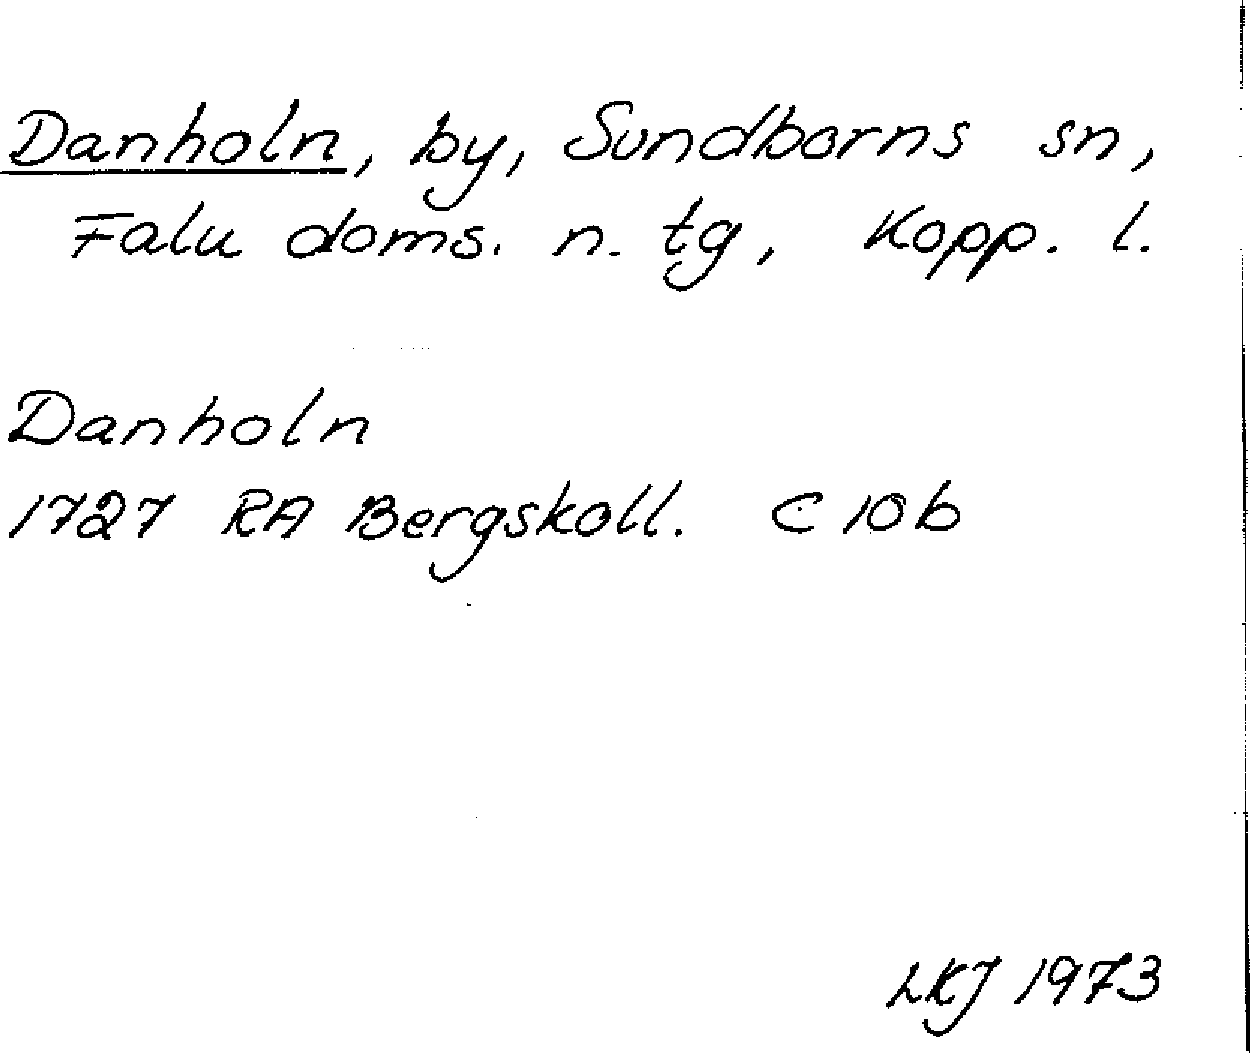 Danholn, by, Sundborns sn,
Falu doms. n. tg, Kopp. l.
Danholn
1727 RA Bergskoll. C 10b
LKJ 1973